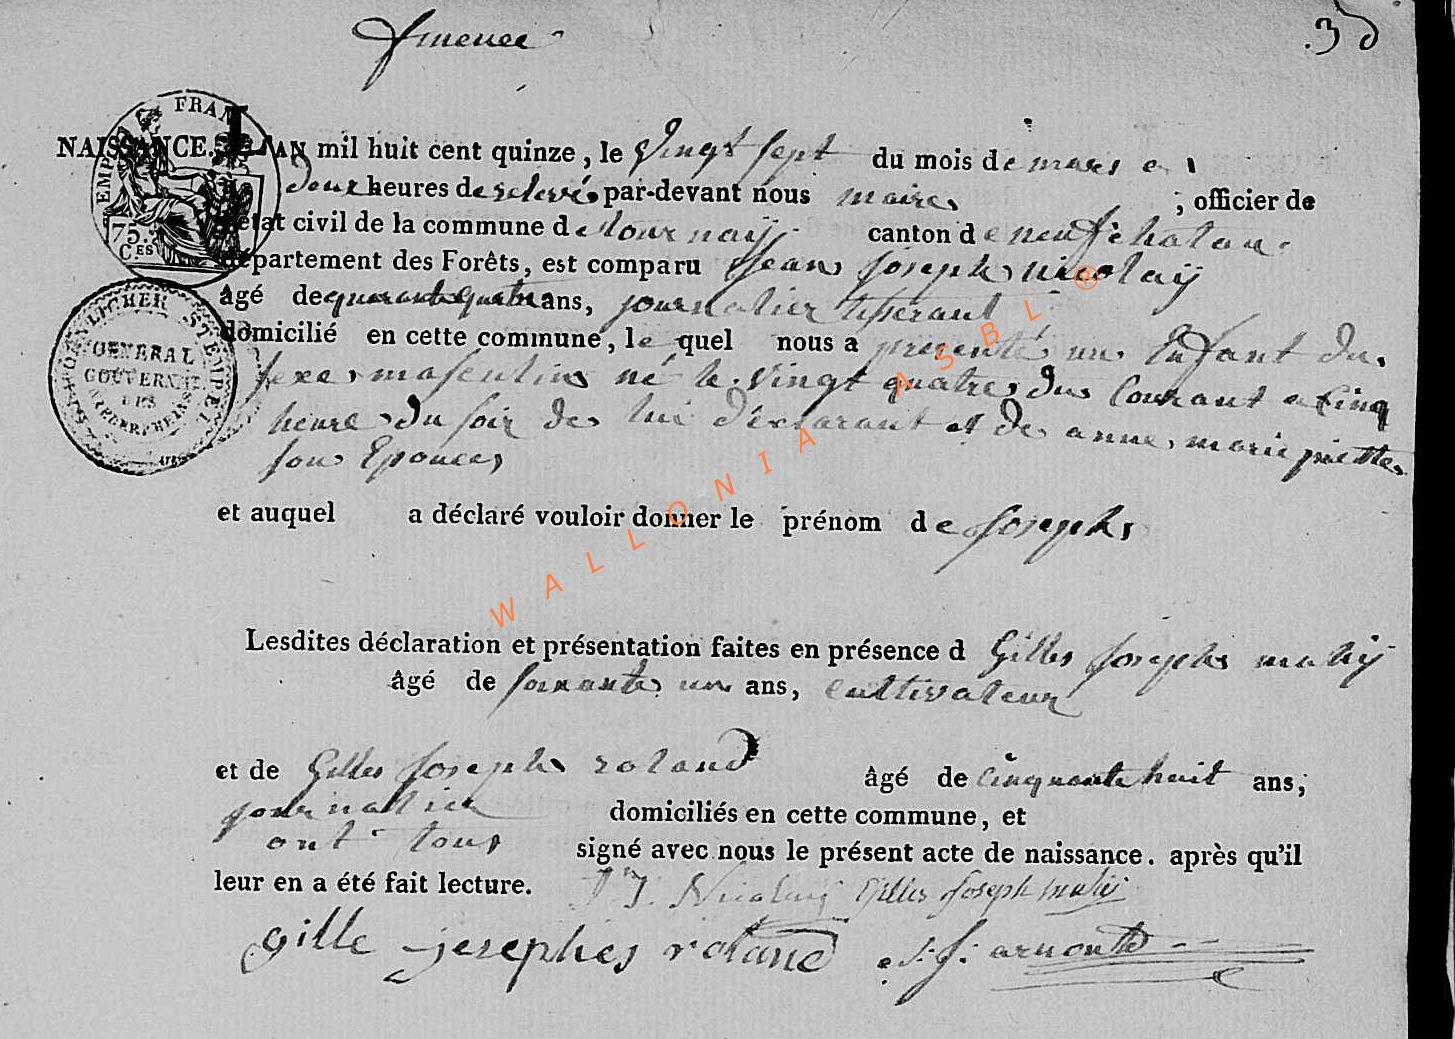 3
EMP FRAN
75.
CES
NAISSANCE. L'AN mil huit cent quinze, le Vingt sept du mois de mars a
deux heures de relevé par-devant nous maire ; officier de
l'état civil de la commune de tournay canton de neufchatau
département des Forêts, est comparu Jean Joseph nicolaÿ
âgé de quarante quatre ans, journalier tisserant
domicilié en cette commune, le quel nous a presenté un Enfant du
sexe masculin né le Vingt quatre du Courant a Cinq
heure du soir de lui déclarant et de anne marie piette
son Epouce
et auquel a déclaré vouloir donner le prénom de Joseph
Lesdites déclaration et présentation faites en présence d Gilles Joseph mahÿ
âgé de soixante un ans, cultivateur
et de Gilles Joseph roland âgé de Cinquante huit ans;
journalier domiciliés en cette commune, et
ont tous signé avec nous le présent acte de naissance. après qu'il
leur en a été fait lecture. J J. Nicolaÿ Gilles Joseph mahÿ
gille jesephes roland
GENERAL
GOUVERNET
STEMPEL
WALLONIA ASBL ®